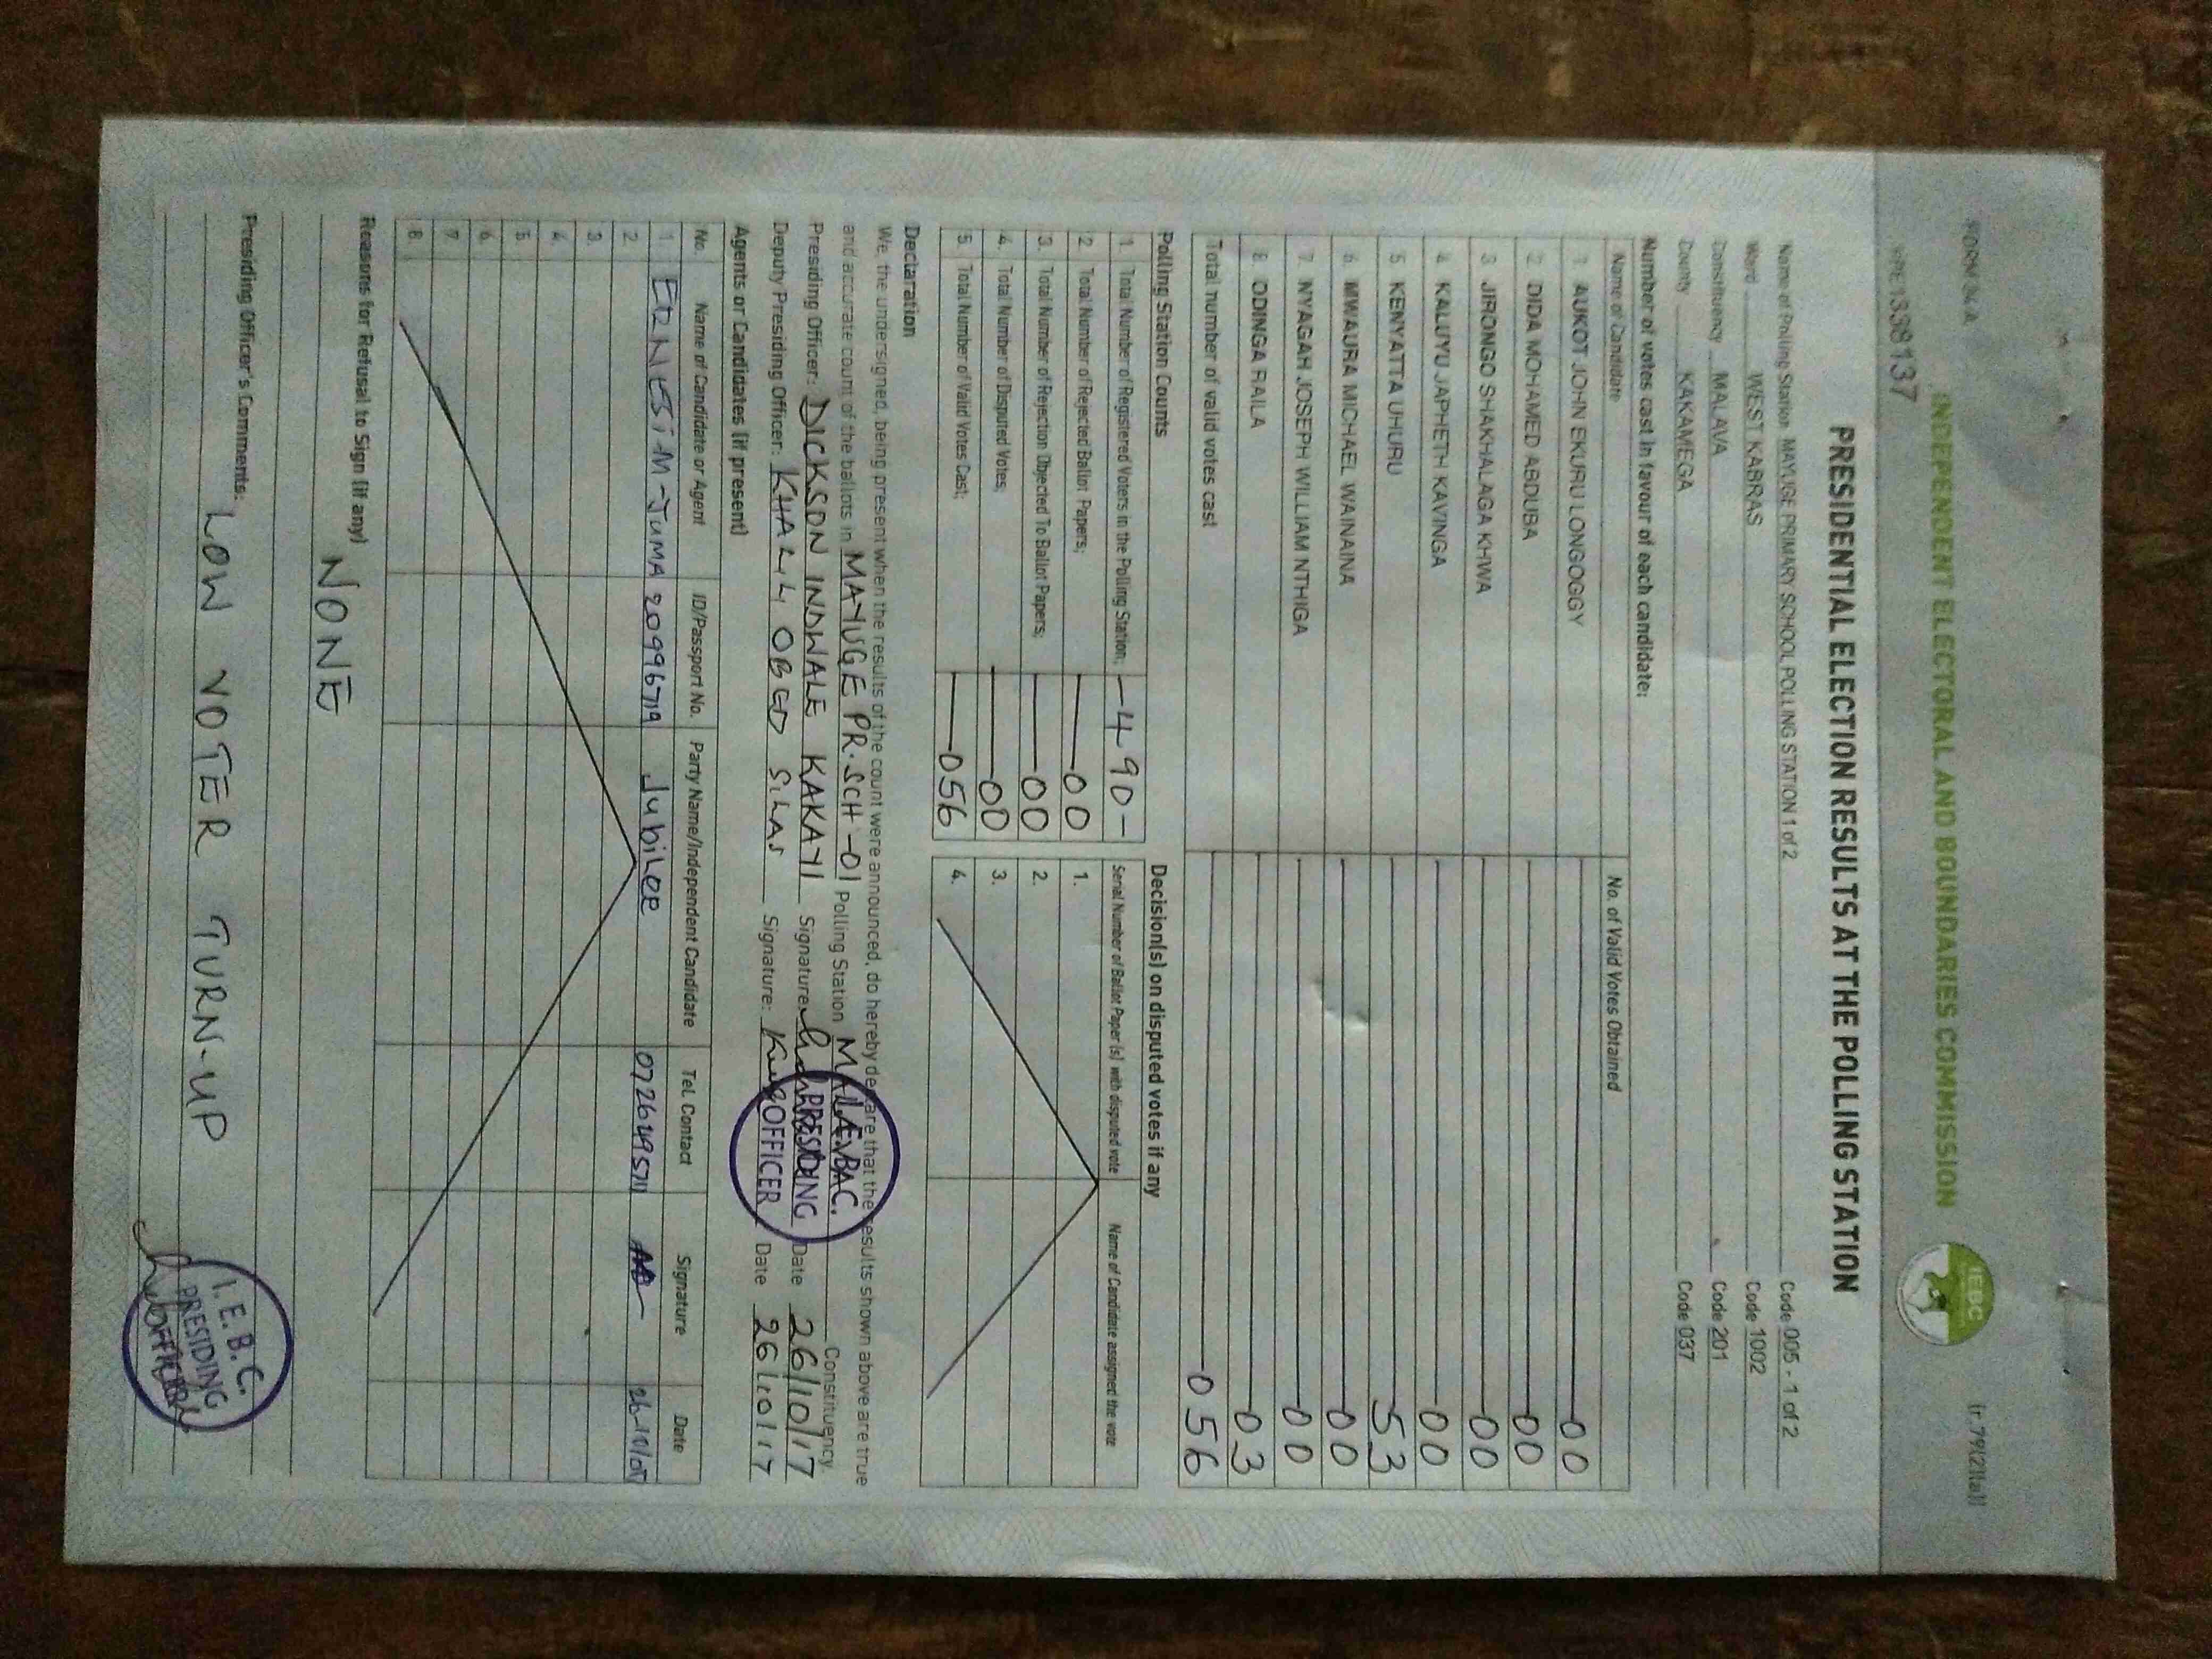 FORM 34 A
(r.79(2)(a))
INDEPENDENT ELECTORAL AND BOUNDARIES COMMISSION
IEBC
PRE1338137
PRESIDENTIAL ELECTION RESULTS AT THE POLLING STATION
Name of Polling Station MAYUGE PRIMARY SCHOOL POLLING STATION 1 of 2 Code 005 - 1 of 2
Ward WEST KABRAS Code 1002
Constituency MALAVA Code 201
County KAKAMEGA Code 037
Number of votes cast in favour of each candidate:
Name of Candidate No. of Valid Votes Obtained
1 AUKOT JOHN EKURU LONGOGGY 00
2 DIDA MOHAMED ABDUBA 00
3 JIRONGO SHAKHALAGA KHWA 00
4 KALUYU JAPHETH KAVINGA 00
5 KENYATTA UHURU 53
6 MWAURA MICHAEL WAINAINA 00
7 NYAGAH JOSEPH WILLIAM NTHIGA 00
8 ODINGA RAILA 03
Total number of valid votes cast 056
Polling Station Counts
1. Total Number of Registered Voters in the Polling Station; -490-
2. Total Number of Rejected Ballot Papers; 00
3. Total Number of Rejection Objected To Ballot Papers; 00
4. Total Number of Disputed Votes; 00
5. Total Number of Valid Votes Cast; 056
Decision(s) on disputed votes if any
Serial Number of Ballot Paper (s) with disputed vote Name of Candidate assigned the vote
1.
2.
3.
4.
Declaration
We, the undersigned, being present when the results of the count were announced, do hereby declare that the results shown above are true
and accurate count of the ballots in MAYUGE PR. SCH -01 Polling Station Constituency
Presiding Officer: DICKSON INDWALE KAKAYI Signature: Date 26/10/17
Deputy Presiding Officer: KHALILI OBED SILAS Signature: Date 26/10/17
PRESIDING
OFFICER
Agents or Candidates (if present)
No. Name of Candidate or Agent ID/Passport No. Party Name/Independent Candidate Tel. Contact Signature Date
1. 20996719 Jubilee 0726495711
2.
3.
4.
5.
6.
7.
8.
Reasons for Refusal to Sign (if any)
NONE
Presiding Officer's Comments: LOW VOTER TURN-UP
I. E. B. C.
PRESIDING
OFFICER